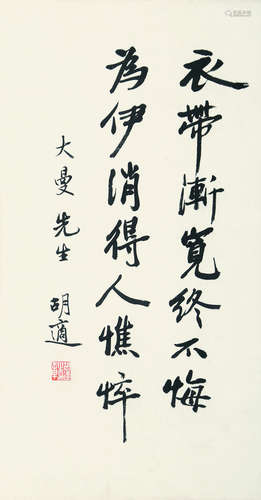 衣帶漸寬終不悔
為伊消得人憔悴
大曼先生
胡適